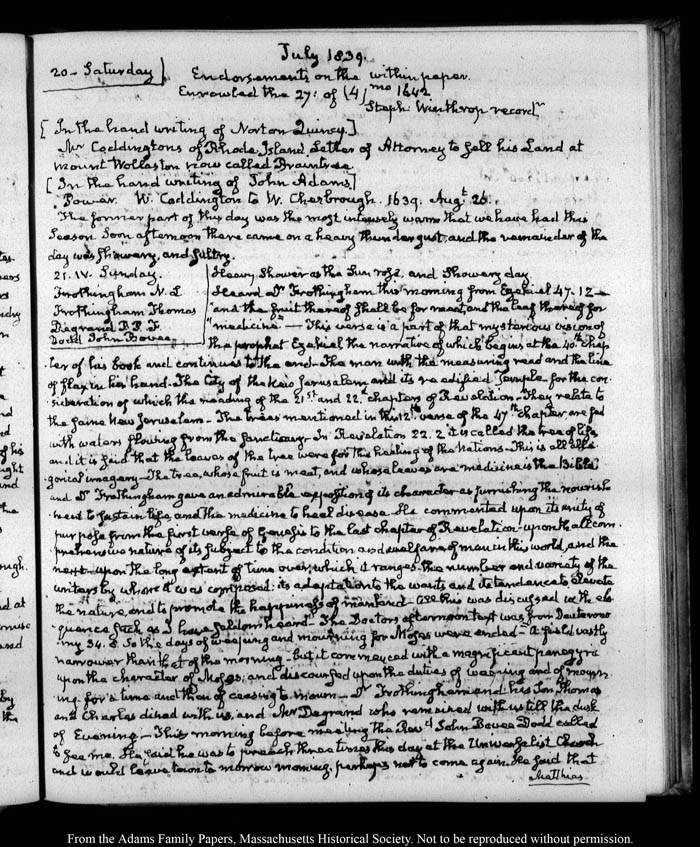 July 1839.
20 - Saturday] Endorsements on the within paper.
Enrowled the 27: of (4) mo 1642
Steph: Winthrop recordr
[In the hand writing of Norton Quincy.]
Mr Coddingtons of Rhode Island Letter of Attorney to sell his Land at
Mount Wollaston now called Braintree
[In the hand writing of John Adams]
Power. W. Coddington to W. Chesbrough. 1639. Augt 26.
The former part of this day was the most intensely warm that we have had this
season. Soon afternoon there came on a heavy thunder gust, and the remainder of the
day was showery, and sultry.
21. IV. Sunday.
Frothingham N. L
Frothingham Thomas
Degrand P. P. F.
Dodd John Bovee
Heavy Shower as the Sun rose, and Showery day
Heard Dr Frothingham this morning from Ezekiel 47. 12 -
"and the fruit thereof shall be for meat, and the leaf thereof for
"medicine - This verse is a part of that mysterious vision of
the prophet Ezekiel the narrative of which begins at the 40th chap-
ter of his book and continues to the end - The man with the measuring reed and the line
of flax in his hand - The City of the New Jerusalem and its re edified Temple for the con-
sideration of which the reading of the 21st and 22d chapters of Revelation - They relate to
the same New Jerusalem - The trees mentioned in this 12th verse of the 47th chapter, are fed
with waters flowing from the sanctuary - In Revelation 22. 2 it is called the tree of life,
and it is said that the leaves of the tree were for the healing of the Nations - This is all alle-
gorical imagery - The tree, whose fruit is meat, and whose leaves are medicine is the Bible
and Dr Frothingham gave an admirable exposition of its character as furnishing the nourish-
ment to sustain life, and the medicine to heal disease. He commented upon its unity of
purpose from the first verse of Genesis to the last chapter of Revelation - upon the all com-
prehensive nature of its subject to the condition and welfare of man in this world, and the
next - upon the long extent of time over which it ranges - the number and variety of the
writers by whom it was composed: its adaptation to the wants and its tendance to elevate
the nature, and to promote the happiness of mankind - All this was discussed with elo-
quence such as I have seldom heard - The Doctors afternoon text was from Deuterono-
my 34. 8. So the days of weeping and mourning for Moses were ended - a field vastly
narrower than that of the morning - but it commenced with a magnificent panegyric
upon the character of Moses; and discoursed upon the duties of weeping and of mourn-
ing for a time and then of ceasing to mourn - Dr Frothingham and his Son, Thomas
and Charles dined with us, and Mr Degrand who remained with us till the dusk
of Evening - This morning before meeting the Revd John Bovee Dodd called
to see me. He said he was to preach three times this day at the Universalist Church
and would leave town to morrow morning, perhaps not to come again. He said that
Matthias
From the Adams Family Papers, Massachusetts Historical Society. Not to be reproduced without permission.